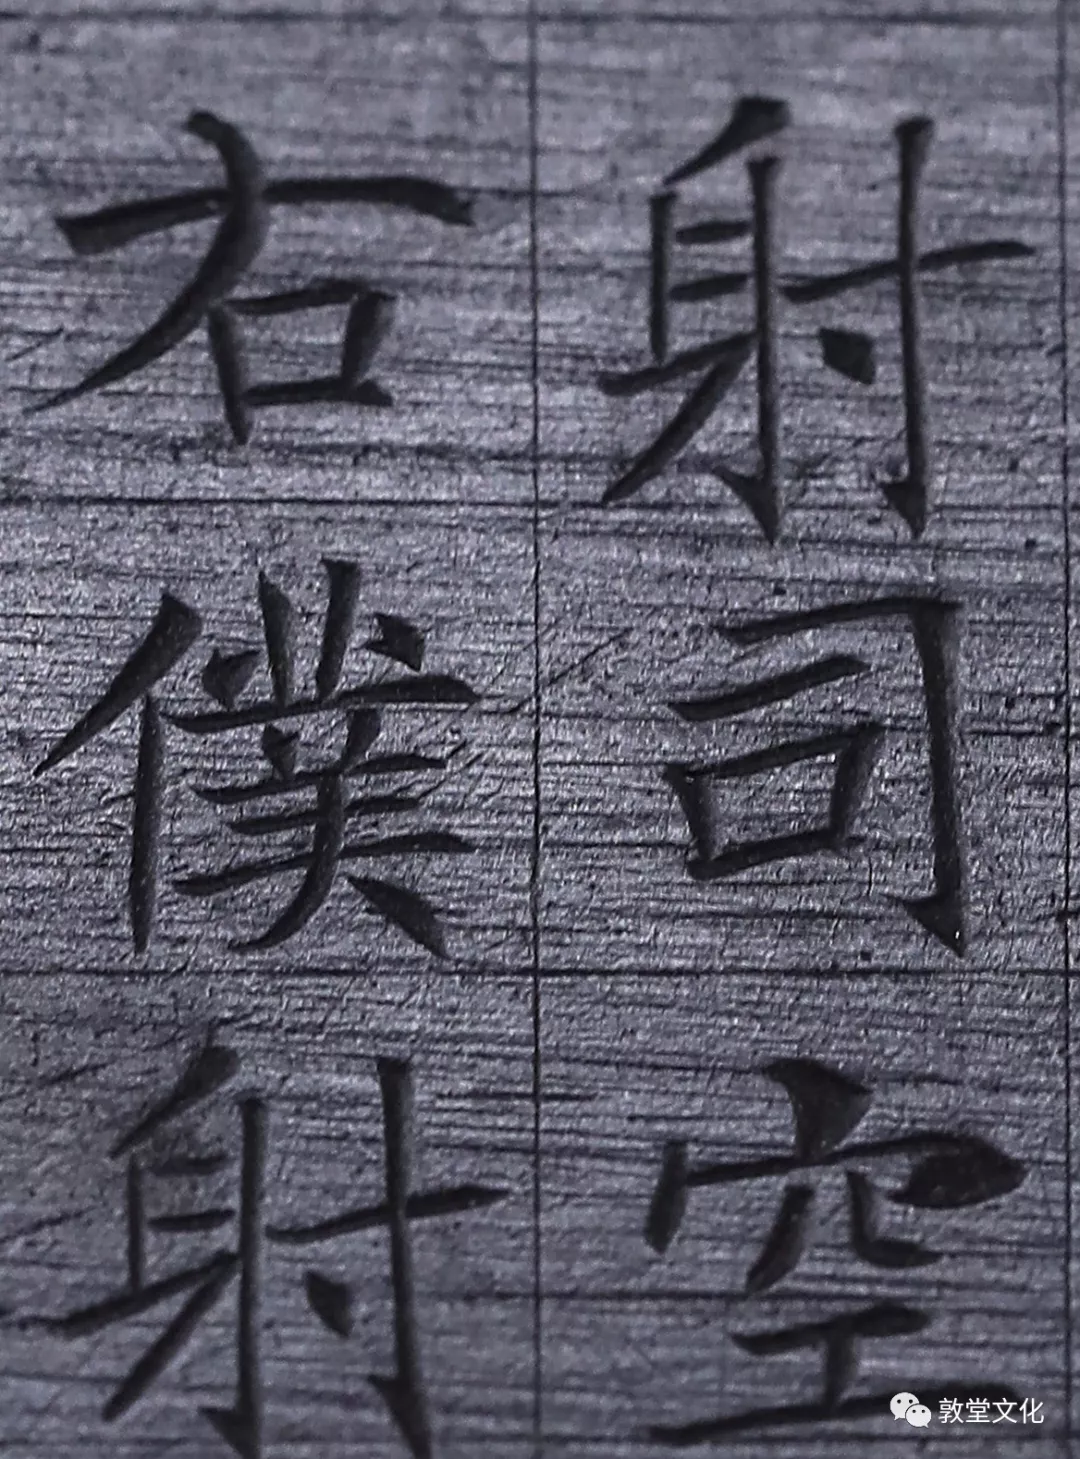 射司空
右僕射
敦堂文化